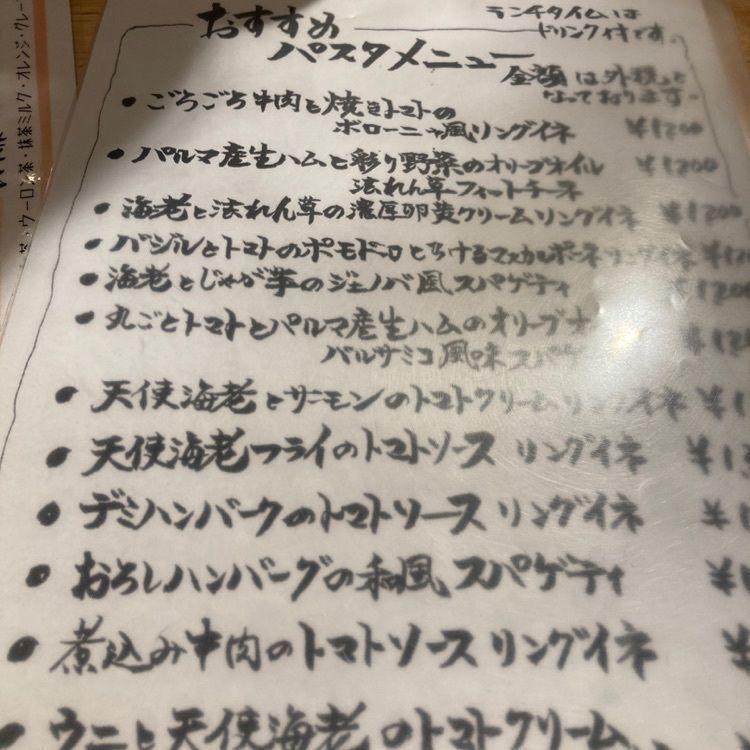 おすすめ
パスタメニュー
ランチタイムは
ドリンク付です。
金額は外税と
なっております。
・ごろごろ牛肉と焼きトマトの
ボローニャ風リングイネ ¥1200
・パルマ産生ハムと彩り野菜のオリーブオイル
法れん草フィットチーネ ¥1200
・海老と法れん草の濃厚卵黄クリームリングイネ ¥1200
・バジルとトマトのポモドーロとろけるマスカルポーネリングイネ
・海老とじゃが芋のジェノバ風スパゲティ
・丸ごとトマトとパルマ産生ハムのオリーブ
バルサミコ風味スパゲ
・天使海老とサーモンのトマトクリームリングイネ
・天使海老フライのトマトソース リングイネ
・デミハンバーグのトマトソース リングイネ
・おろしハンバーグの和風 スパゲティ
・煮込み牛肉のトマトソース リングイネ
・ウニと天使海老のトマトクリーム
ウーロン茶・抹茶ミルク・オレンジ・グレー